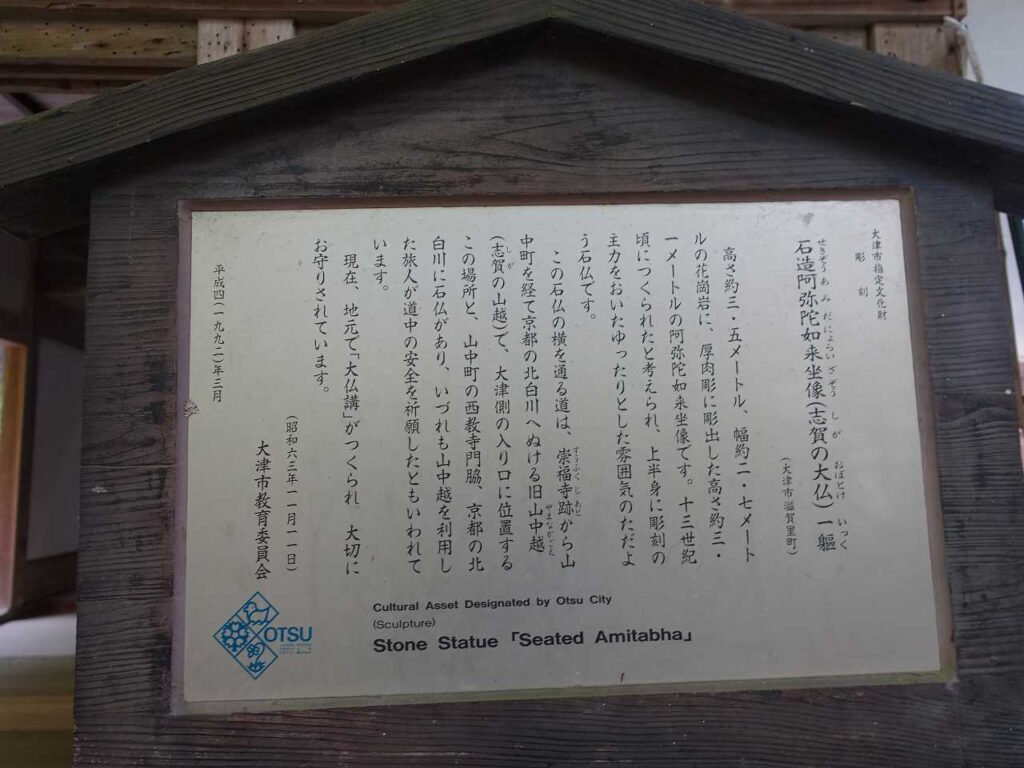 大津市指定文化財
彫刻
石造阿弥陀如来坐像(志賀の大仏)一軀
(大津市滋賀里町)
高さ約三・五メートル、幅約二・七メート
ルの花崗岩に、厚肉彫に彫出した高さ約三・
一メートルの阿弥陀如来坐像です。十三世紀
頃につくられたと考えられ、上半身に彫刻の
主力をおいたゆったりとした雰囲気のただよ
う石仏です。
この石仏の横を通る道は、崇福寺跡から山
中町を経て京都の北白川へぬける旧山中越
(志賀の山越)で、大津側の入り口に位置する
この場所と、山中町の西教寺門脇、京都の北
白川に石仏があり、いづれも山中越を利用し
た旅人が道中の安全を祈願したともいわれて
います。
現在、地元で「大仏講」がつくられ、大切に
お守りされています。
(昭和六三年一一月一一日)
大津市教育委員会
平成四(一九九二)年三月
OTSU
Cultural Asset Designated by Otsu City
(Sculpture)
Stone Statue「Seated Amitabha」